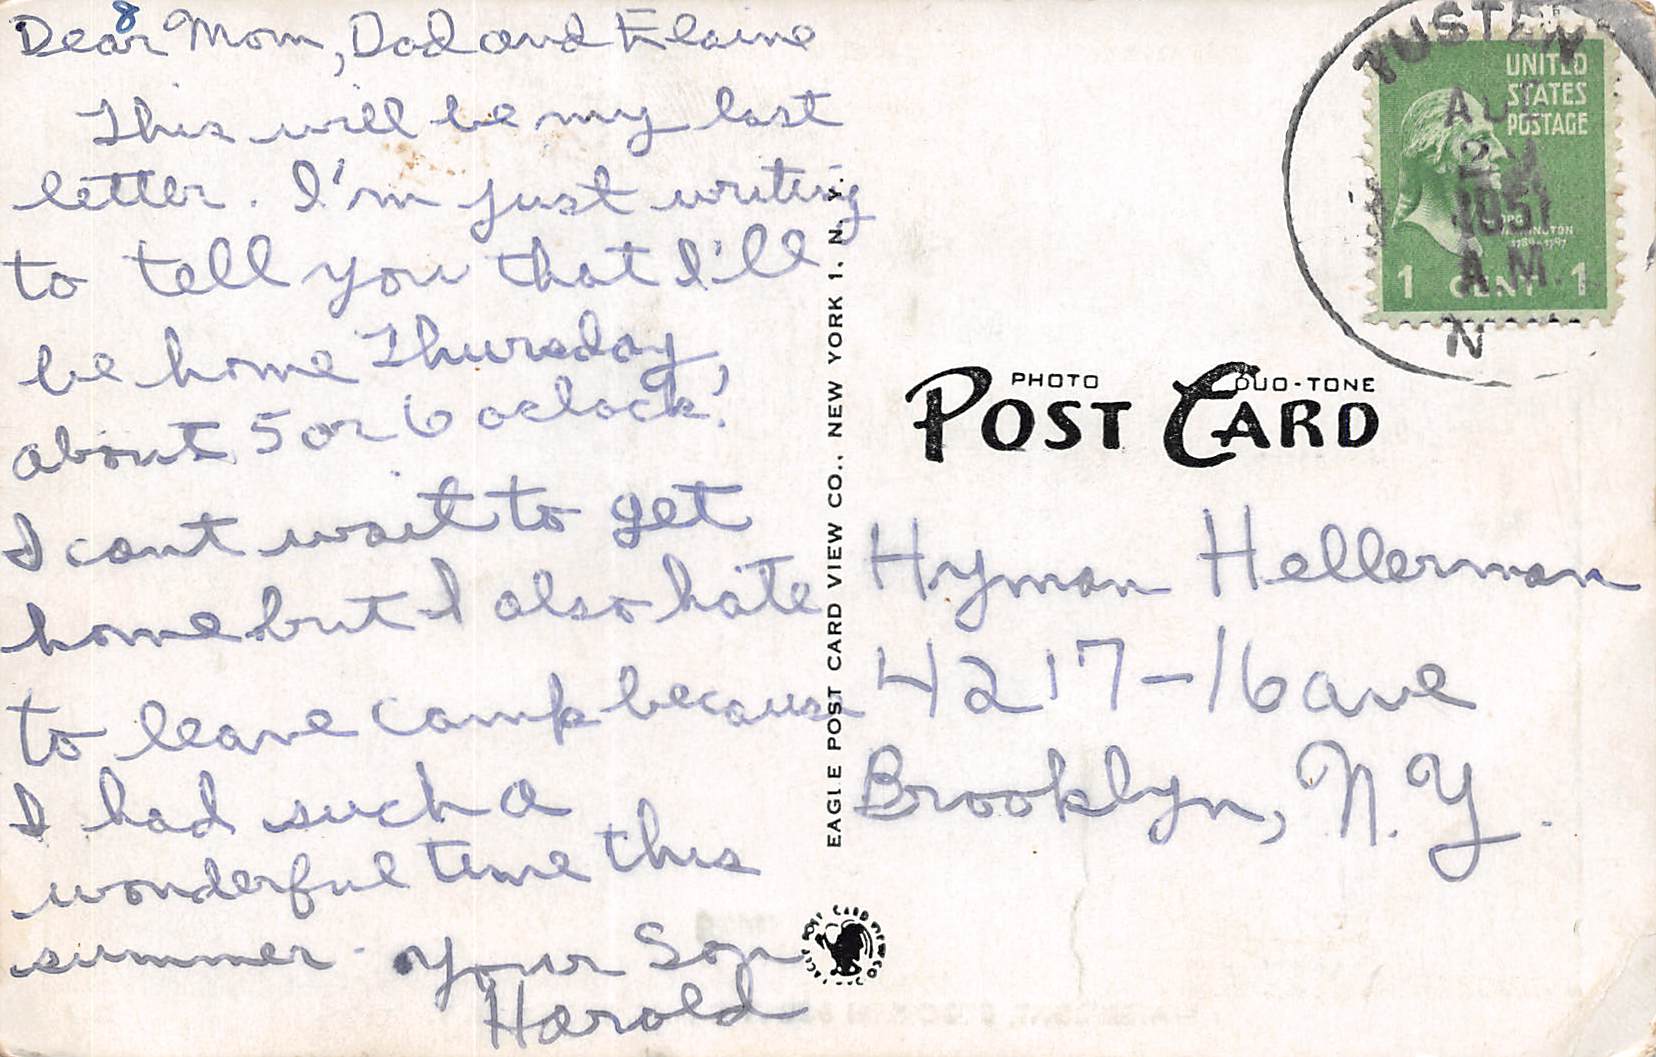 8
Dear Mom, Dad and Elaine
This will be my last
letter. I'm just writing
to tell you that I'll
be home Thursday,
about 5 or 6 oclock.
I cant wait to get
home but I also hate
to leave camp because
I had such a
wonderful time this
summer. Your Son
Harold
EAGLE POST CARD VIEW CO., NEW YORK 1, N. Y.
TUSTEN
AUG
1951
A.M.
N
UNITED
STATES
POSTAGE
WASHINGTON
1789-1797
1 CENT 1
PHOTO DUO-TONE
POST CARD
Hyman Hellerman
4217-16 ave
Brooklyn, N.Y.